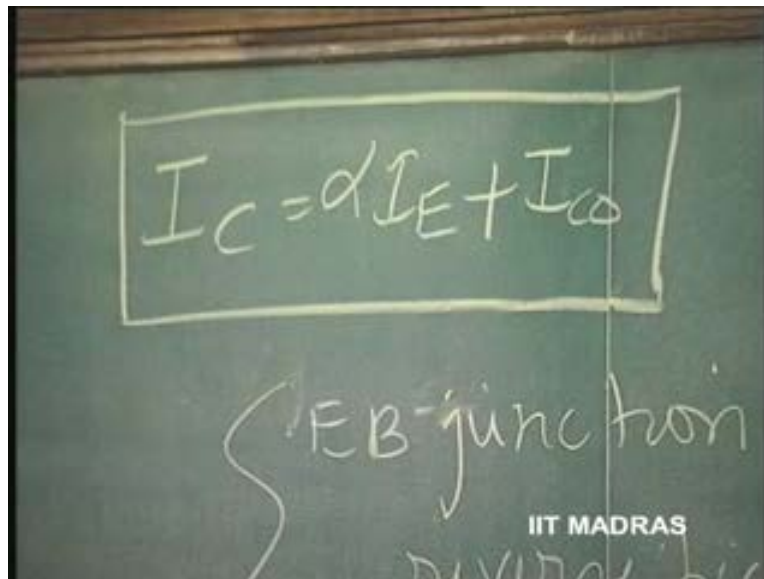 I_C = αI_E + I_CO
EB-junction
IIT MADRAS